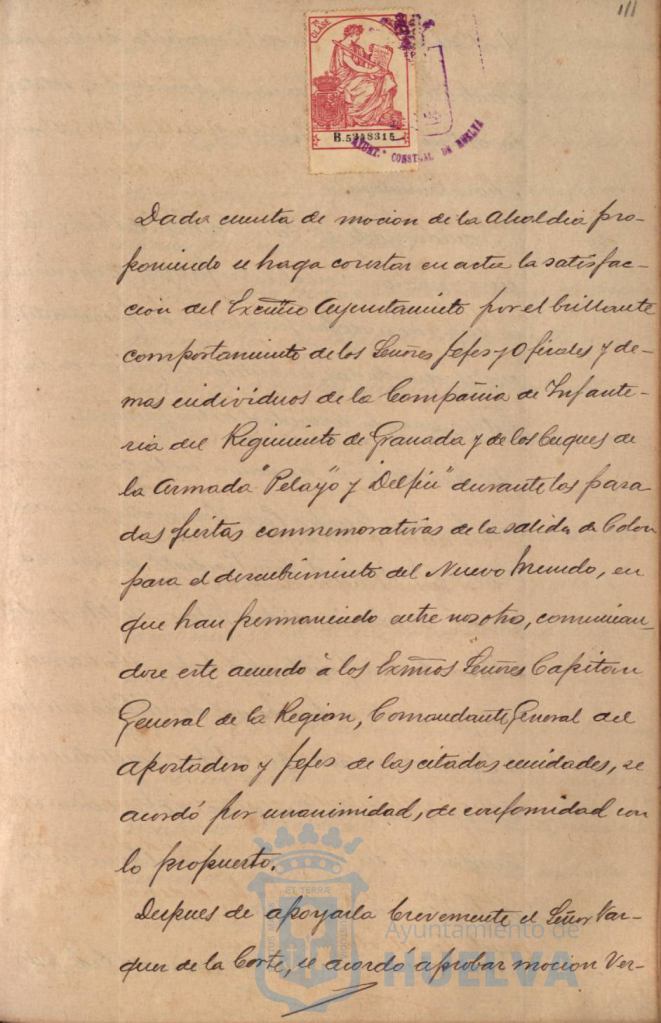 111
CLASE
B.5318315
AYUNT.º CONSTNAL DE HUELVA
Dada cuenta de mocion de la Alcaldia pro-
poniendo se haga constar en acta la satisfac-
ción del Excmo Ayuntamiento por el brillante
comportamiento de los Señores Jefes y Oficiales y de-
mas individuos de la Compañia de Infante-
ria del Regimiento de Granada y de los buques de
la Armada "Pelayo" y "Delfin" durante las pasa
das fiestas conmemorativas de la salida de Colon
para el descubrimiento del Nuevo Mundo, en
que han permanecido entre nosotros, comunican-
dose este acuerdo á los Exmos Señores Capitan
General de la Region, Comandante General del
Apostadero y Jefes de las citadas unidades, se
acordó por unanimidad, de conformidad con
lo propuesto.
Despues de apoyarla brevemente el Señor Vaz-
quez de la Corte, se acordó aprobar mocion Ver-
Ayuntamiento de
HUELVA